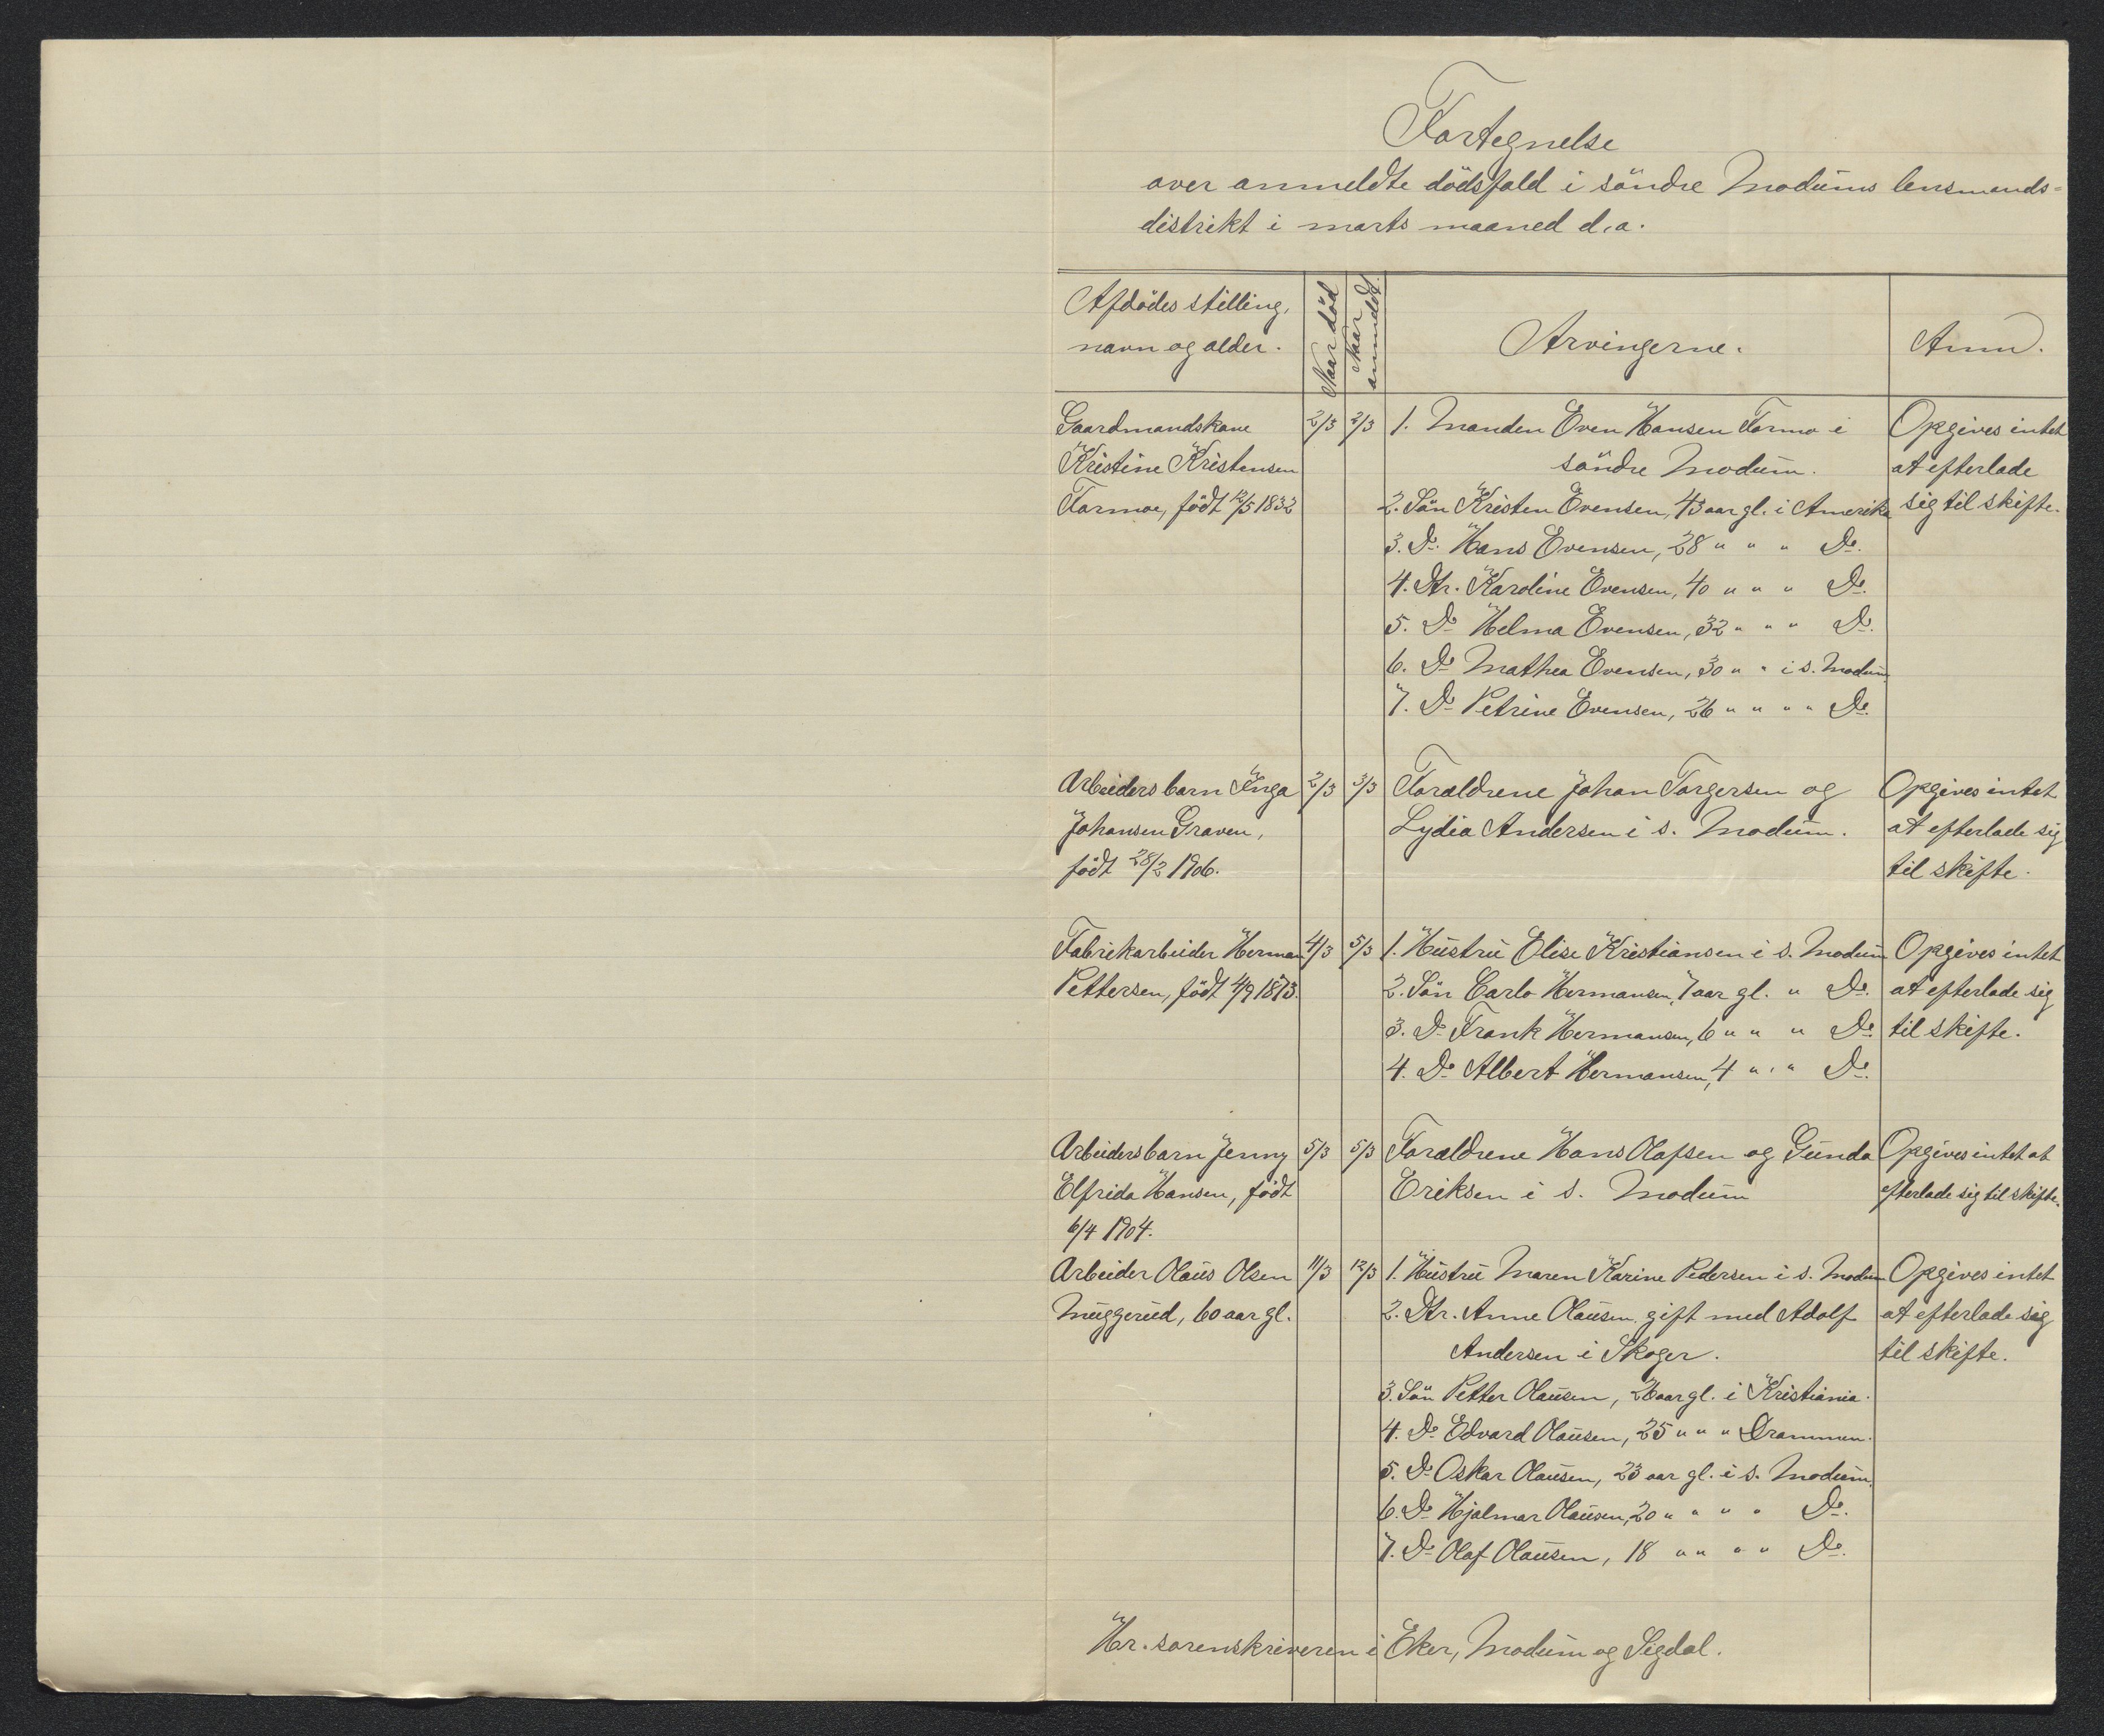 Fortegnelse
over anmeldte dödsfald i söndre Modums lensmands-
distrikt i marts maaned d.a.
Afdödes stilling, navn og alder.
Naar död
Naar anmeldt.
Arvingerne.
Anm.
Gaardmandskone 2/3 2/3 1. Manden Even Hansen Formo i Opgives intet
Kristine Kristensen söndre Modum. at efterlade
Formoe, födt 12/5 1832 2. Sön Kristen Evensen, 43 aar gl. i Amerika sig til skifte.
3. Do. Hans Evensen, 28 " " " Do.
4. Dtr. Karoline Evensen, 40 " " " Do.
5. Do Helma Evensen, 32 " " " Do.
6. Do Mathea Evensen, 30 " " i s. Modum
7. Do Petrine Evensen, 26 " " " " Do.
Arbeidersbarn Inga 2/3 3/3 Forældrene Johan Torgersen og Opgives intet
Johansen Graven, Lydia Andersen i s. Modum. at efterlade sig
födt 28/2 1906. til skifte.
Fabrikarbeider Herman 4/3 5/3 1. Hustru Elise Kristiansen i s. Modum Opgives intet
Pettersen, födt 4/9 1873. 2. Sön Carlo Hermansen, 7 aar gl. " Do. at efterlade sig
3. Do Frank Hermansen, 6 " " " Do. til skifte.
4. Do Albert Hermansen, 4 " " " Do.
Arbeidersbarn Jenny 5/3 5/3 Forældrene Hans Olafsen og Gunda Opgives intet at
Elfrida Hansen, födt Eriksen i s. Modum efterlade sig til skifte.
6/4 1904.
Arbeider Olaus Olsen 11/3 12/3 1. Hustru Maren Karine Pedersen i s. Modum Opgives intet
Muggerud, 60 aar gl. 2. Dtr. Anne Olausen gift med Adolf at efterlade sig
Andersen i Skoger. til skifte.
3. Sön Petter Olausen, 26 aar gl. i Kristiania.
4. Do Edvard Olausen, 25 " " " Drammen.
5. Do Oskar Olausen, 23 aar gl. i s. Modum.
6. Do Hjalmar Olausen, 20 " " " " Do.
7. Do Olaf Olausen, 18 " " " " Do.
Hr. sorenskriveren i Eker, Modum og Sigdal.